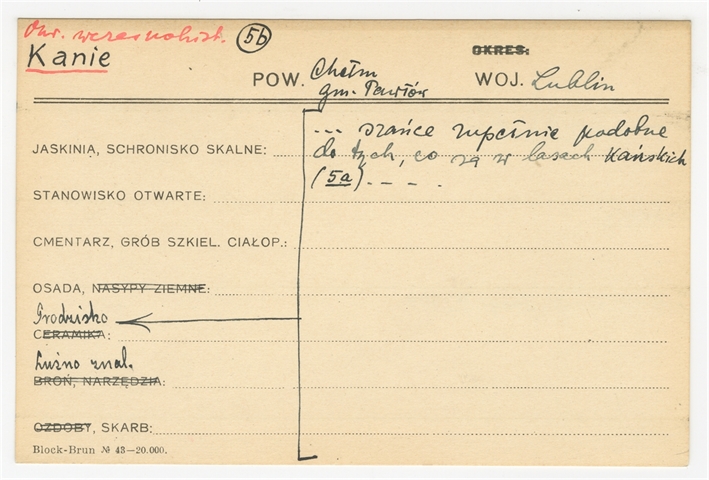 Okr. wczesnohist. (5b)
Kanie
OKRES:
POW. Chełm
gm. Pawłów
WOJ. Lublin
... szańce zupełnie podobne
JASKINIA, SCHRONISKO SKALNE: do tych, co są w lasach Kańskich
(5a) . – – .
STANOWISKO OTWARTE:
CMENTARZ, GRÓB SZKIEL. CIAŁOP.:
OSADA, NASYPY ZIEMNE:
Grodzisko
CERAMIKA:
Luźno znal.
BROŃ, NARZĘDZIA:
OZDOBY, SKARB:
Block-Brun № 43—20.000.